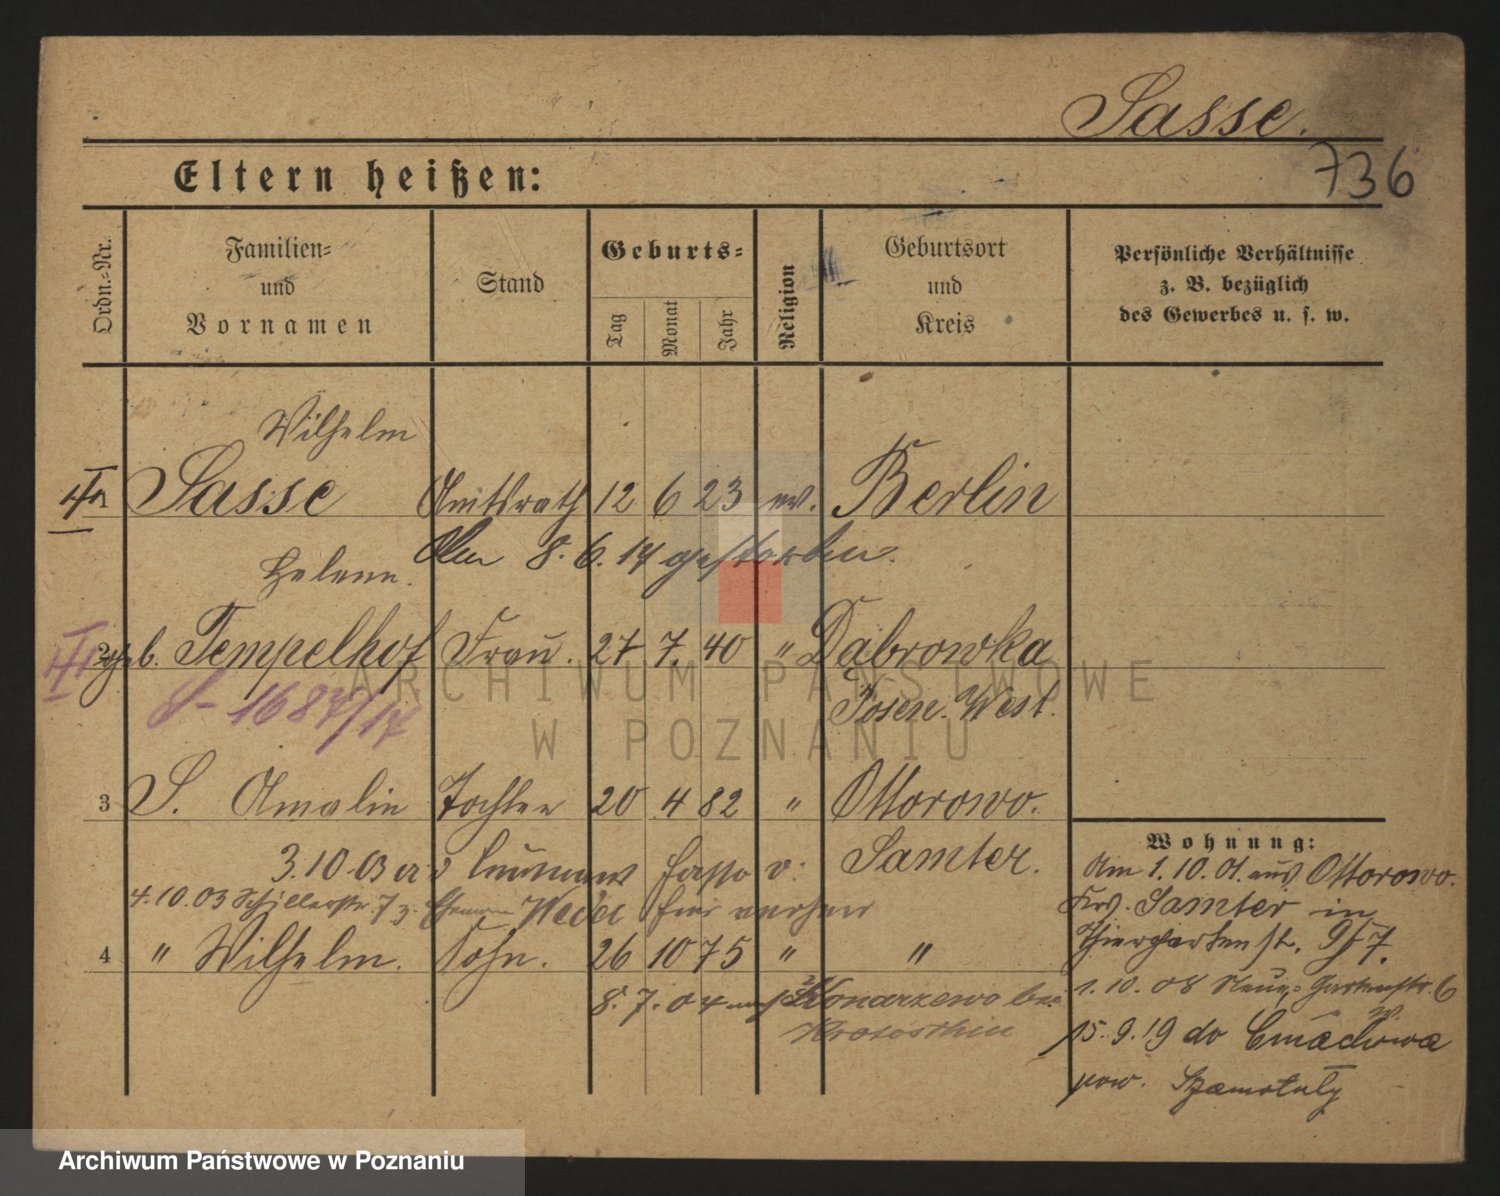 Sasse.
736
Eltern heißen:
Ordn.-Nr.
Familien-
und
Vornamen
Stand
Geburts-
Tag
Monat
Jahr
Religion
Geburtsort
und
Kreis
Persönliche Verhältnisse
z. B. bezüglich
des Gewerbes u. s. w.
Wilhelm
Sasse Amtsrath 12 6 23 ev. Berlin
Am 8. 6. 14 gestorben.
Helene.
2 geb. Tempelhof Frau. 27 7. 40 " Dabrowka
Posen. West.
1687/17
3 S. Amalie Tochter 20 4 82 " Ottorowo.
Samter.
3.10.03
4.10.03 Schillerstr. 7
4 " Wilhelm. Sohn. 26 10 75 " "
8. 7. 04 nach Konarzewo bei
Krotoschin
Wohnung:
Am 1.10.01. aus Ottorowo.
Krs. Samter in
Thiergartenst. 7.
1. 10. 08 Neue Gartenstr. 6
15. 9. 19 do Cmachowa
pow. Szamotuły
ARCHIWUM PAŃSTWOWE
W POZNANIU
Archiwum Państwowe w Poznaniu